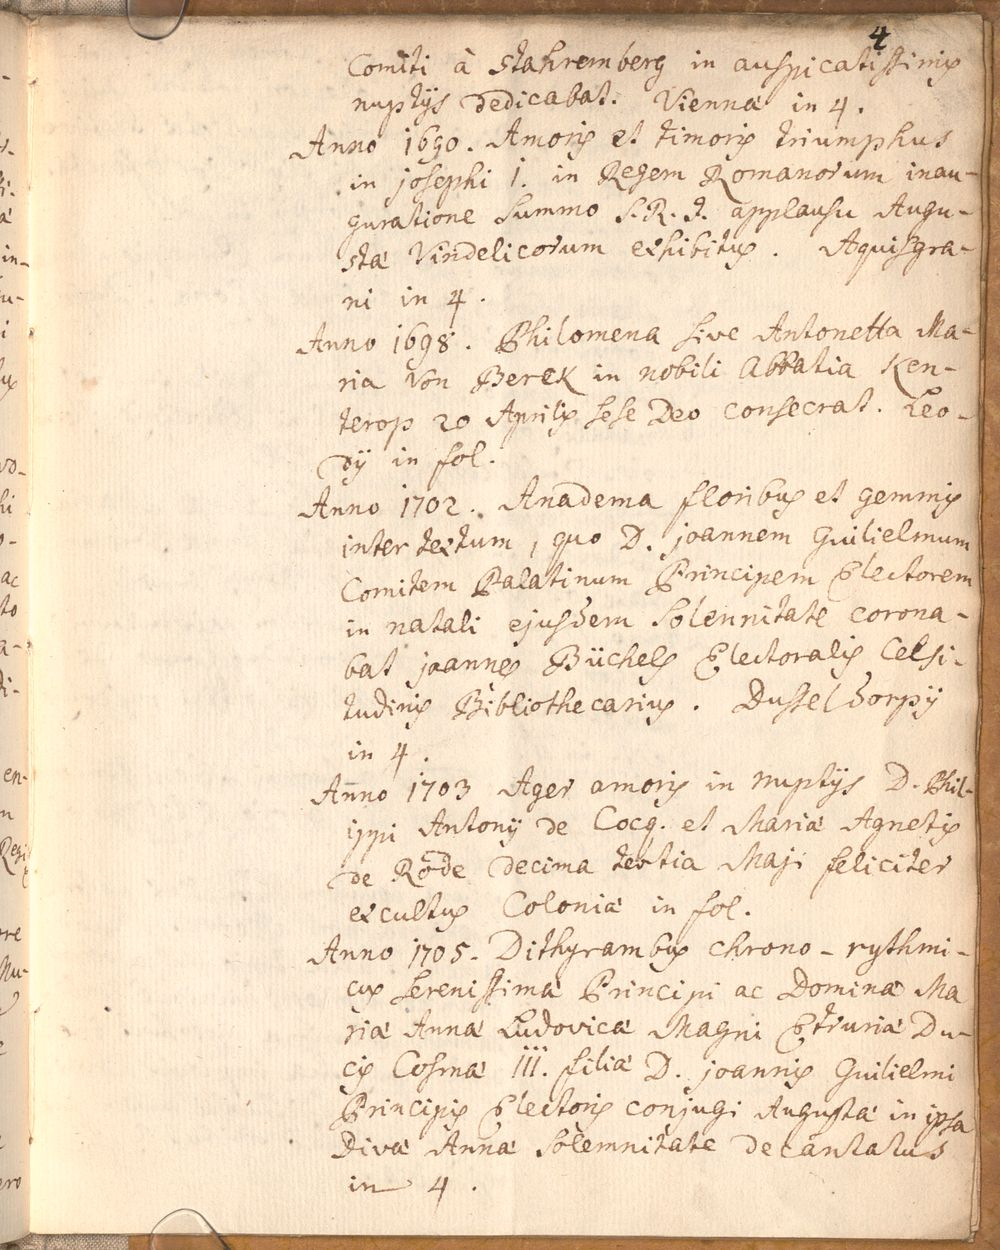 4
Comiti à Stahremberg in auspicatissimis
nuptijs dedicabat. Viennæ in 4.
Anno 1690. Amoris et timoris triumphus
in josephi I. in Regem Romanorum inau-
guratione summo S.R.I. applausu Augu-
stæ Vindelicorum exhibitus. Aquisgra-
ni in 4.
Anno 1698. Philomena sive Antonetta Ma-
ria Von Berck in nobili Abbatia Ken-
terop 20 Aprilis sese Deo consecrat. Leo-
dij in fol.
Anno 1702. Anadema floribus et gemmis
intertextum, quo D. joannem Guilielmum
Comitem Palatinum Principem Electorem
in natali ejusdem solennitate corona-
bat joannes Büchels Electoralis Celsi-
tudinis Bibliothecarius. Dusseldorpij
in 4.
Anno 1703 Ager amoris in nuptijs D. Phil-
ippi Antonij de Cocq. et Mariæ Agnetis
de Rōde decima tertia Maji feliciter
excultus Coloniæ in fol.
Anno 1705. Dithyrambus chrono-rythmi-
cus serenissimæ Principi ac Dominæ Ma
riæ Annæ Ludovicæ Magni Etruriæ Du-
cis Cosmæ III. filiæ D. joannis Guilielmi
Principis Electoris conjugi Augustæ in ipsa
Divæ Annæ solemnitate decantatus
in 4.